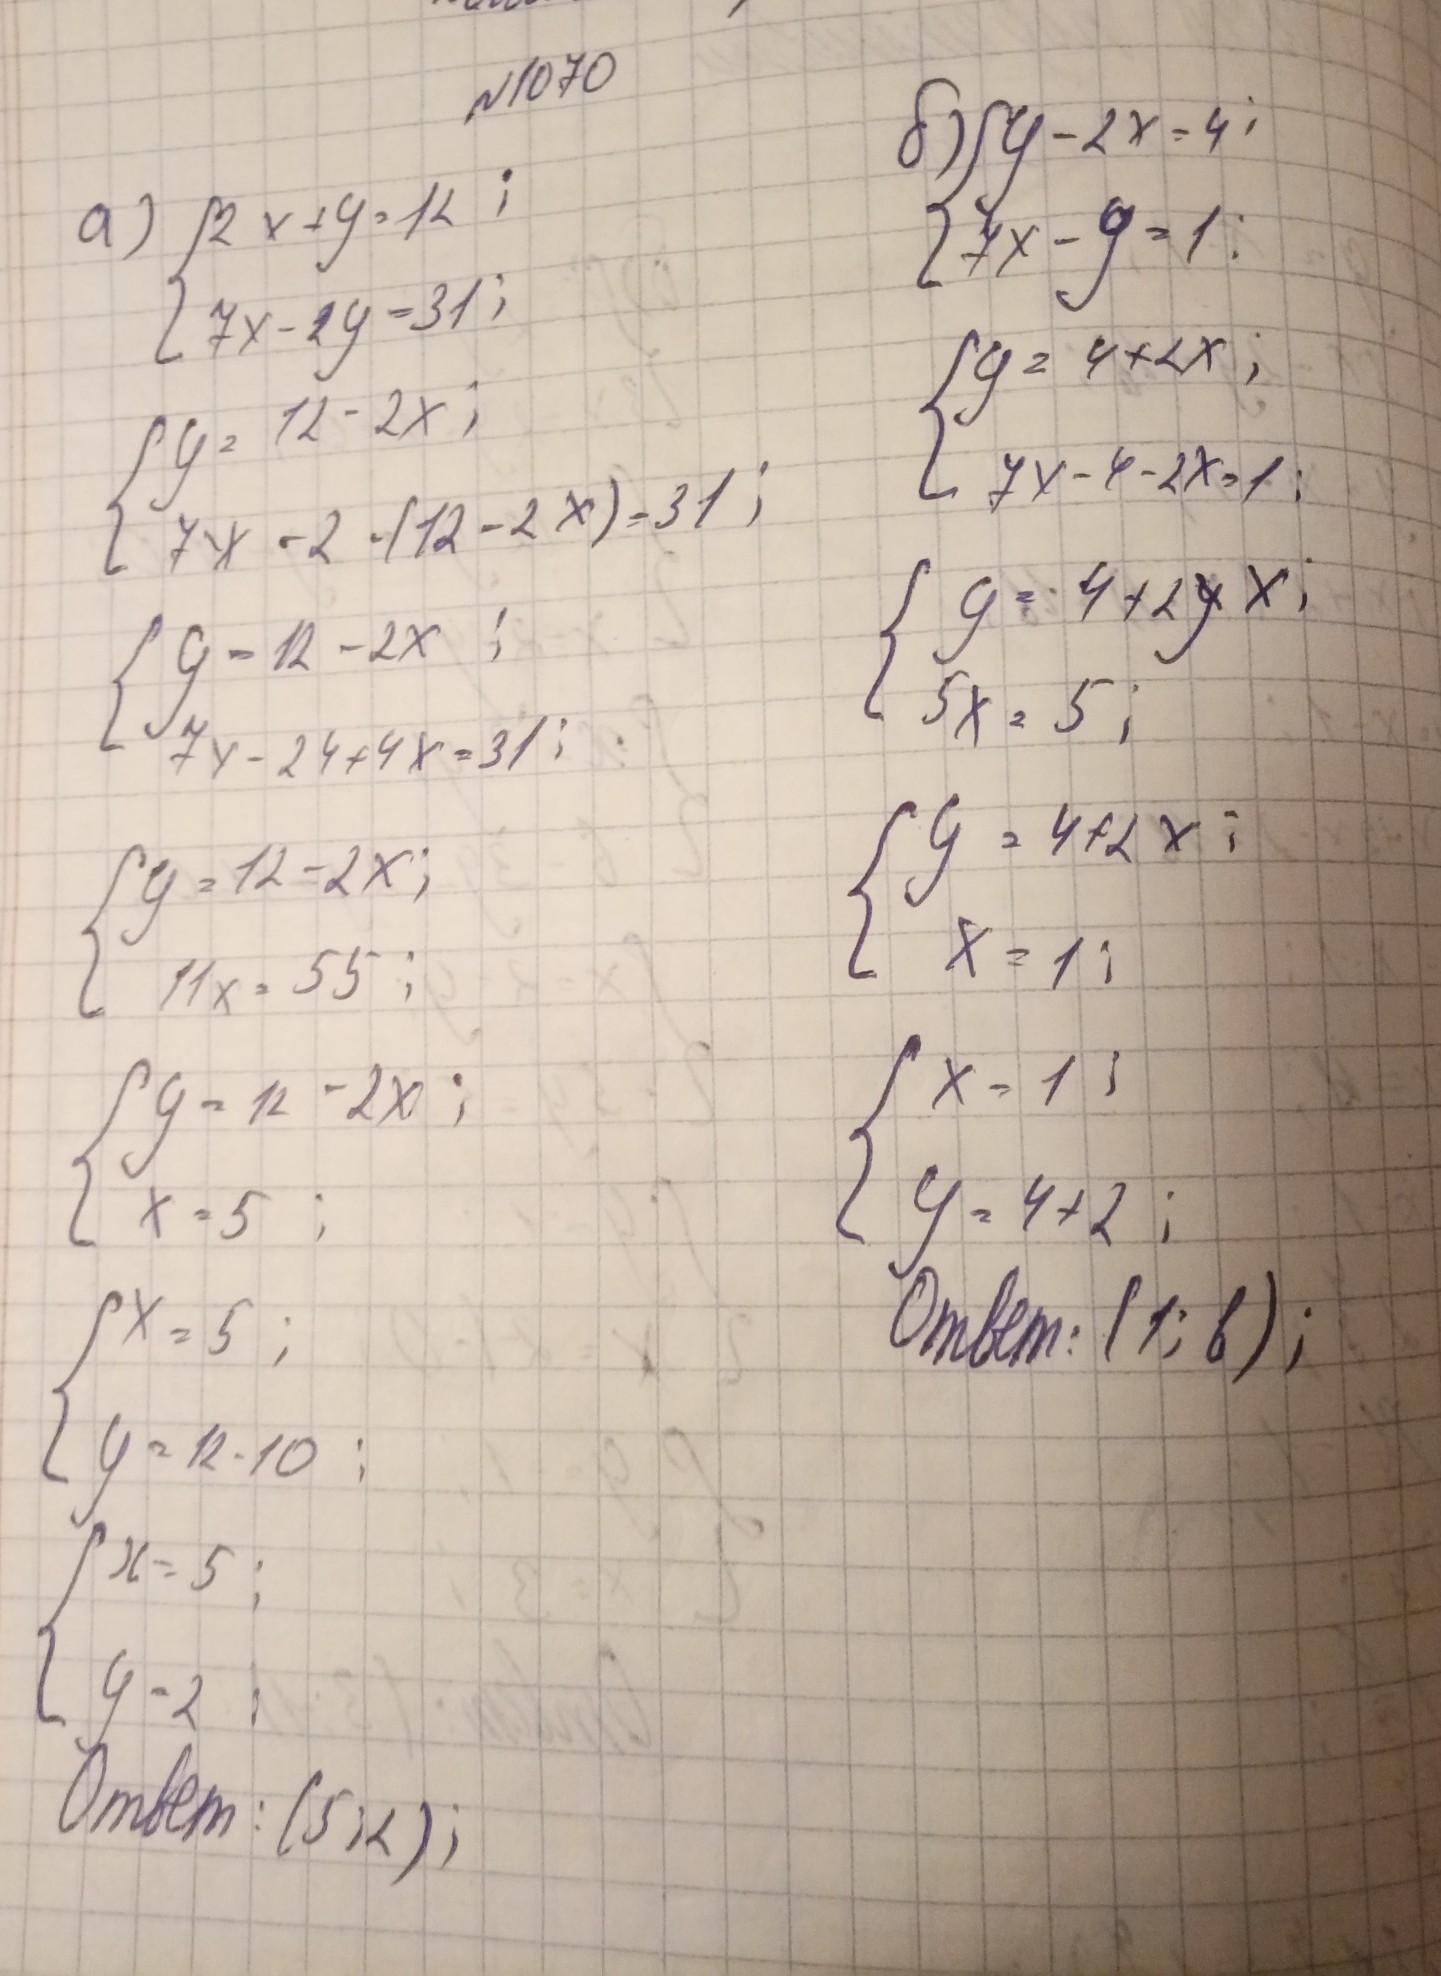 №1070
а) { 2x+y=12;
7x-2y=31;
{ y=12-2x;
7x-2·(12-2x)=31;
{ y=12-2x;
7x-24+4x=31;
{ y=12-2x;
11x=55;
{ y=12-2x;
x=5;
{ x=5;
y=12-10;
{ x=5;
y=2;
Ответ: (5;2);
б) { y-2x=4;
7x-y=1;
{ y=4+2x;
7x-4-2x=1;
{ y=4+2x;
5x=5;
{ y=4+2x;
x=1;
{ x=1;
y=4+2;
Ответ: (1;6);